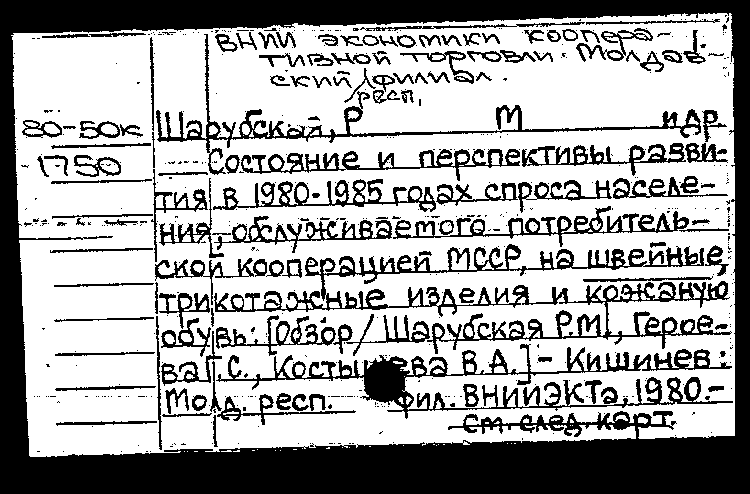 ВНИИ экономики коопера-
тивной торговли. Молдав- 1.
ский филиал.
респ.
80-50к Шарубский, Р М и др
1750 Состояние и перспективы разви-
тия в 1980-1985 годах спроса населе-
ния, обслуживаемого потребитель-
ской кооперацией МССР, на швейные,
трикотажные изделия и кожаную
обувь: [Обзор / Шарубская Р.М., Герое-
ва Г.С., Костышева В.А.] - Кишинев:
Молд. респ. фил. ВНИИЭКТа, 1980.-
см. след. карт.